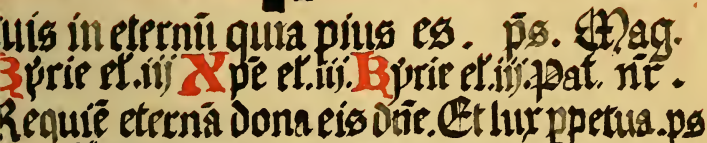 tuis in eternū quia pius es. p̄s. Mag.
Kyrie el.iij Xpē el.iij. Kyrie el.iij. Pat. nr̄.
Requiē eternā dona eis dn̄e. Et lux ppetua. ps